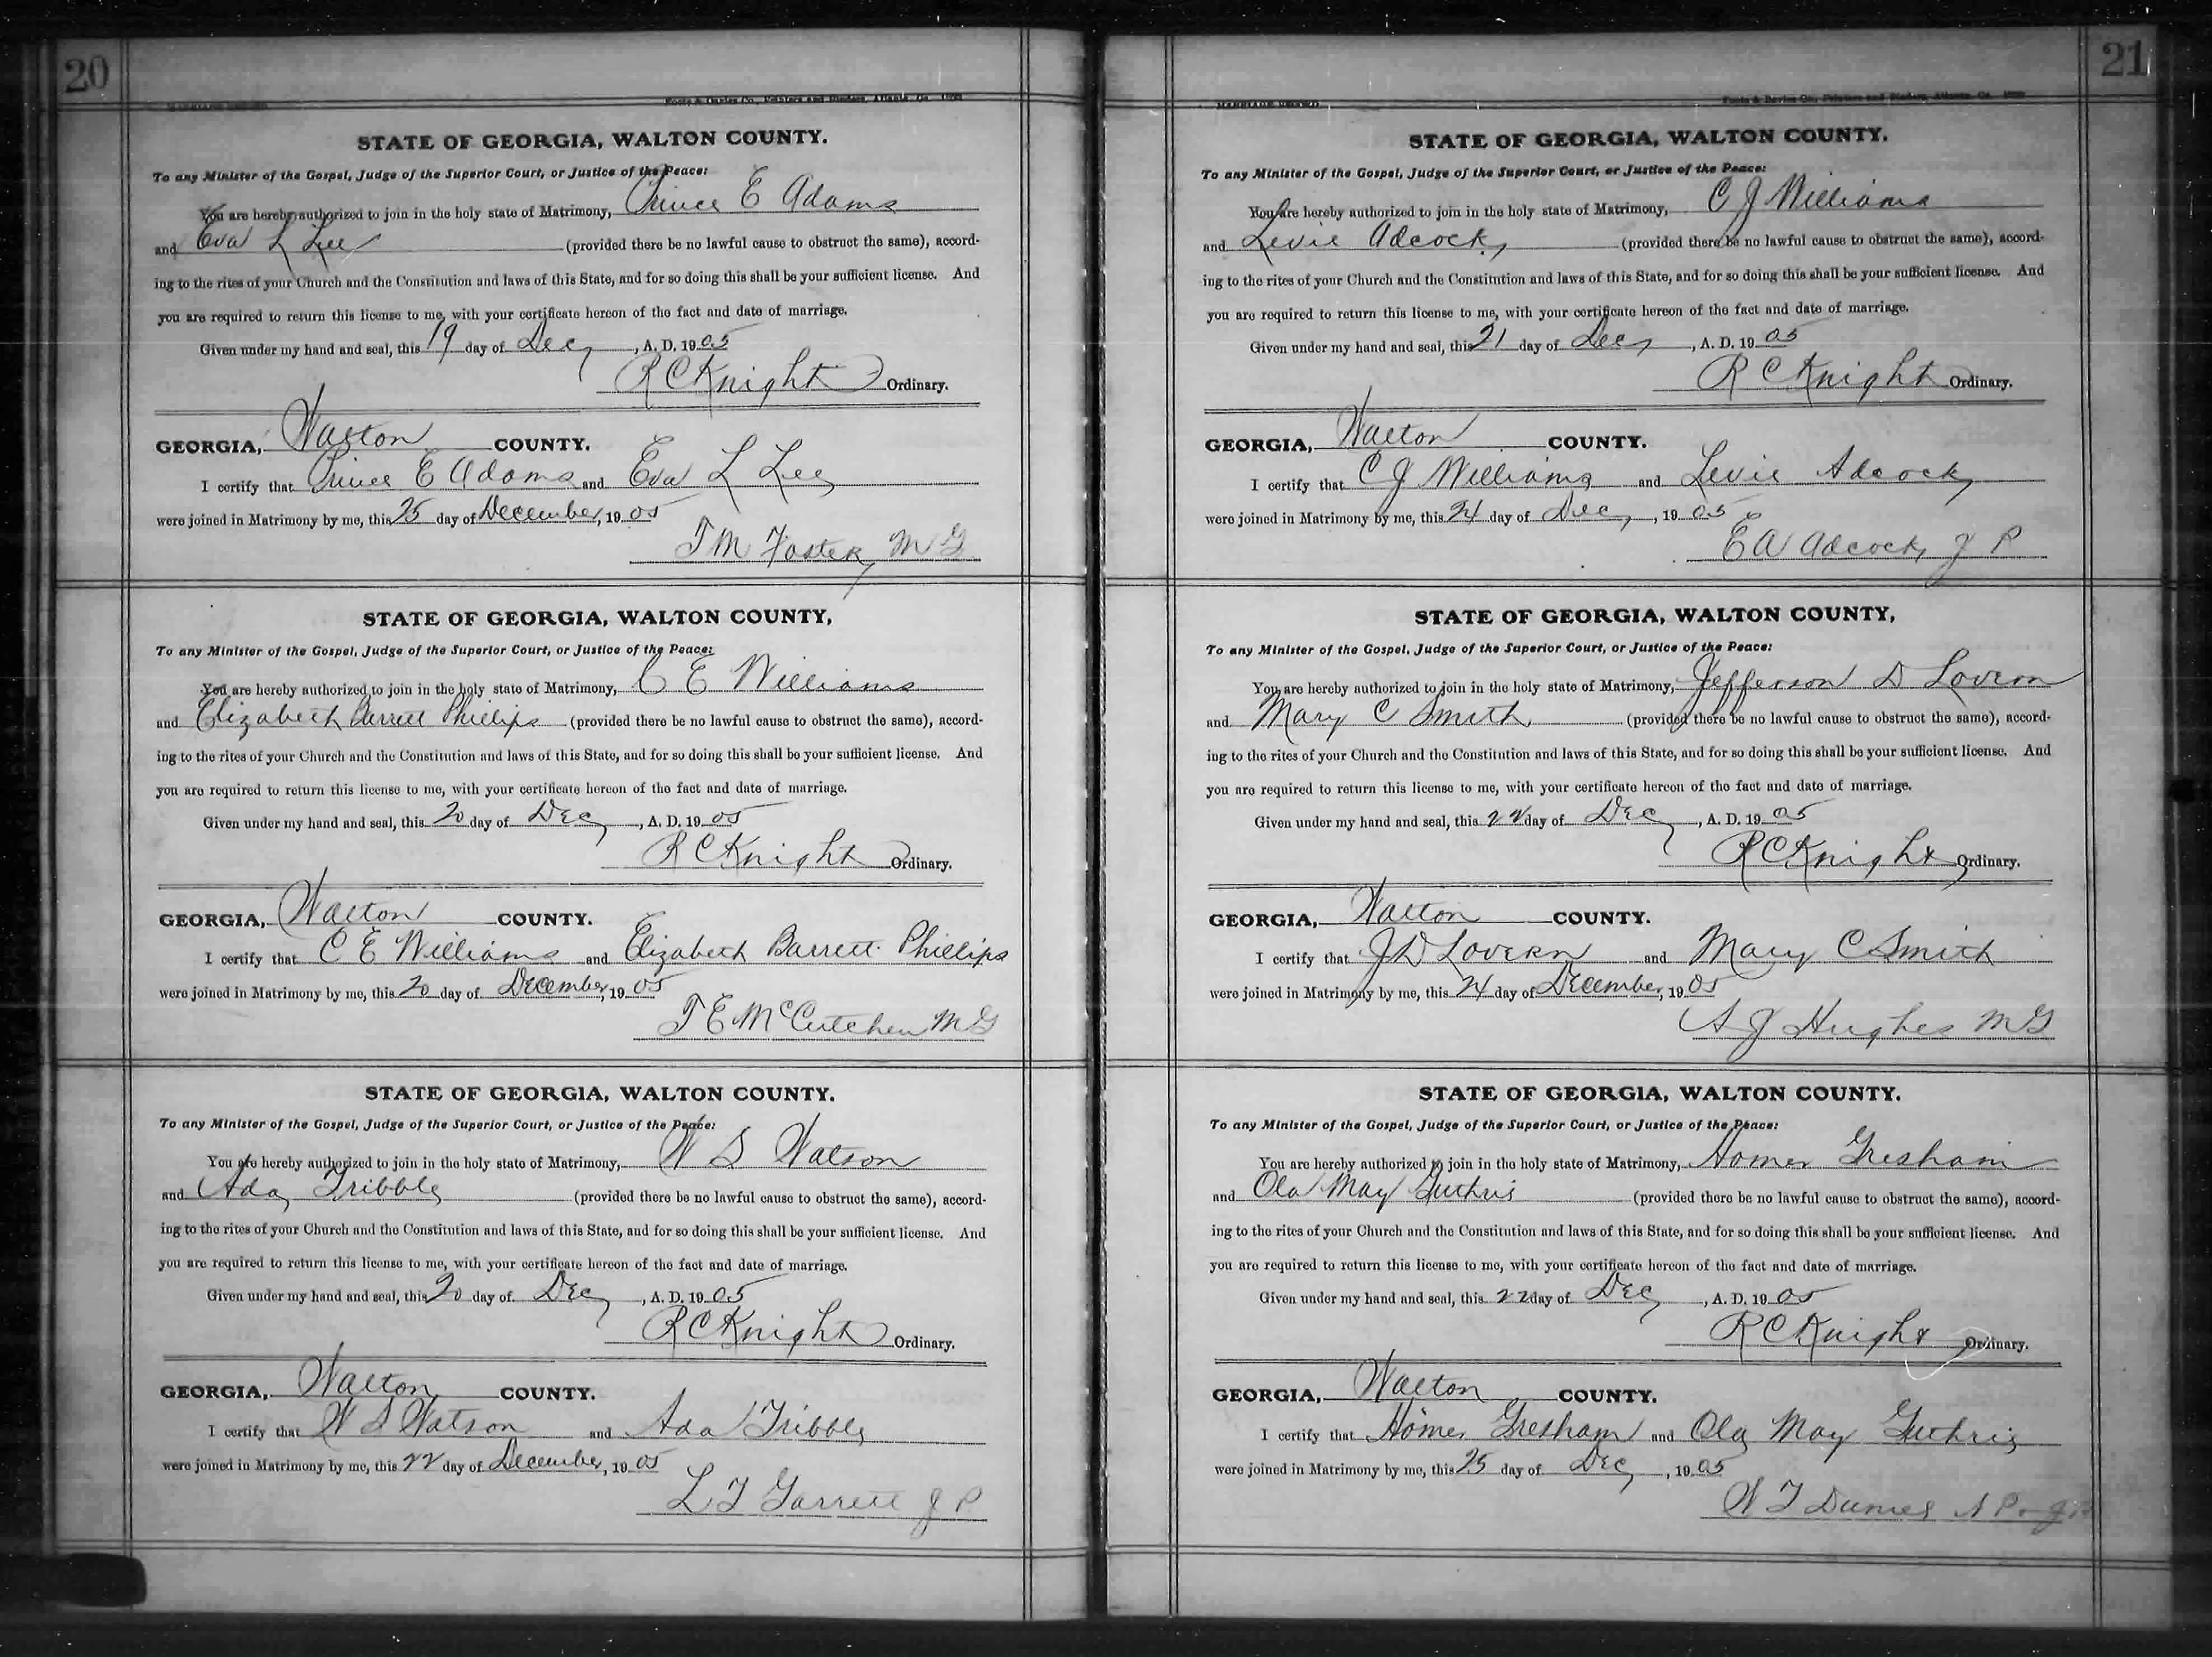 20
MARRIAGE RECORD Foote & Davies Co., Printers and Binders, Atlanta, Ga.
STATE OF GEORGIA, WALTON COUNTY.
To any Minister of the Gospel, Judge of the Superior Court, or Justice of the Peace:
You are hereby authorized to join in the holy state of Matrimony, Prince E Adams
and Eva L Lee (provided there be no lawful cause to obstruct the same), accord-
ing to the rites of your Church and the Constitution and laws of this State, and for so doing this shall be your sufficient license. And
you are required to return this license to me, with your certificate hereon of the fact and date of marriage.
Given under my hand and seal, this 19 day of Dec, A. D. 1905
R C Knight Ordinary.
GEORGIA, Walton COUNTY.
I certify that Prince E Adams and Eva L Lee
were joined in Matrimony by me, this 25 day of December, 1905
T M Foster, M G
STATE OF GEORGIA, WALTON COUNTY,
To any Minister of the Gospel, Judge of the Superior Court, or Justice of the Peace:
You are hereby authorized to join in the holy state of Matrimony, C E Williams
and Elizabeth Barrett Phillips (provided there be no lawful cause to obstruct the same), accord-
ing to the rites of your Church and the Constitution and laws of this State, and for so doing this shall be your sufficient license. And
you are required to return this license to me, with your certificate hereon of the fact and date of marriage.
Given under my hand and seal, this 20 day of Dec, A. D. 1905
R C Knight Ordinary.
GEORGIA, Walton COUNTY.
I certify that C E Williams and Elizabeth Barrett Phillips
were joined in Matrimony by me, this 20 day of December, 1905
T E McCutchen M G
STATE OF GEORGIA, WALTON COUNTY.
To any Minister of the Gospel, Judge of the Superior Court, or Justice of the Peace:
You are hereby authorized to join in the holy state of Matrimony, W S Watson
and Ada Tribble (provided there be no lawful cause to obstruct the same), accord-
ing to the rites of your Church and the Constitution and laws of this State, and for so doing this shall be your sufficient license. And
you are required to return this license to me, with your certificate hereon of the fact and date of marriage.
Given under my hand and seal, this 20 day of Dec, A. D. 1905
R C Knight Ordinary.
GEORGIA, Walton COUNTY.
I certify that W S Watson and Ada Tribble
were joined in Matrimony by me, this 22 day of December, 1905
L T Garrett J P
21
MARRIAGE RECORD Foote & Davies Co., Printers and Binders, Atlanta, Ga.
STATE OF GEORGIA, WALTON COUNTY.
To any Minister of the Gospel, Judge of the Superior Court, or Justice of the Peace:
You are hereby authorized to join in the holy state of Matrimony, C J Williams
and Levie Adcock, (provided there be no lawful cause to obstruct the same), accord-
ing to the rites of your Church and the Constitution and laws of this State, and for so doing this shall be your sufficient license. And
you are required to return this license to me, with your certificate hereon of the fact and date of marriage.
Given under my hand and seal, this 21 day of Dec, A. D. 1905
R C Knight Ordinary.
GEORGIA, Walton COUNTY.
I certify that C J Williams and Levie Adcock
were joined in Matrimony by me, this 24 day of Dec, 1905
E A Adcock, J P
STATE OF GEORGIA, WALTON COUNTY,
To any Minister of the Gospel, Judge of the Superior Court, or Justice of the Peace:
You are hereby authorized to join in the holy state of Matrimony, Jefferson D Lovern
and Mary C Smith (provided there be no lawful cause to obstruct the same), accord-
ing to the rites of your Church and the Constitution and laws of this State, and for so doing this shall be your sufficient license. And
you are required to return this license to me, with your certificate hereon of the fact and date of marriage.
Given under my hand and seal, this 22 day of Dec, A. D. 1905
R C Knight Ordinary.
GEORGIA, Walton COUNTY.
I certify that J D Lovern and Mary C Smith
were joined in Matrimony by me, this 24 day of December, 1905
A J Hughes M G
STATE OF GEORGIA, WALTON COUNTY.
To any Minister of the Gospel, Judge of the Superior Court, or Justice of the Peace:
You are hereby authorized to join in the holy state of Matrimony, Homer Gresham
and Ola May Guthrie (provided there be no lawful cause to obstruct the same), accord-
ing to the rites of your Church and the Constitution and laws of this State, and for so doing this shall be your sufficient license. And
you are required to return this license to me, with your certificate hereon of the fact and date of marriage.
Given under my hand and seal, this 22 day of Dec, A. D. 1905
R C Knight Ordinary.
GEORGIA, Walton COUNTY.
I certify that Homer Gresham and Ola May Guthrie
were joined in Matrimony by me, this 25 day of Dec, 1905
W T